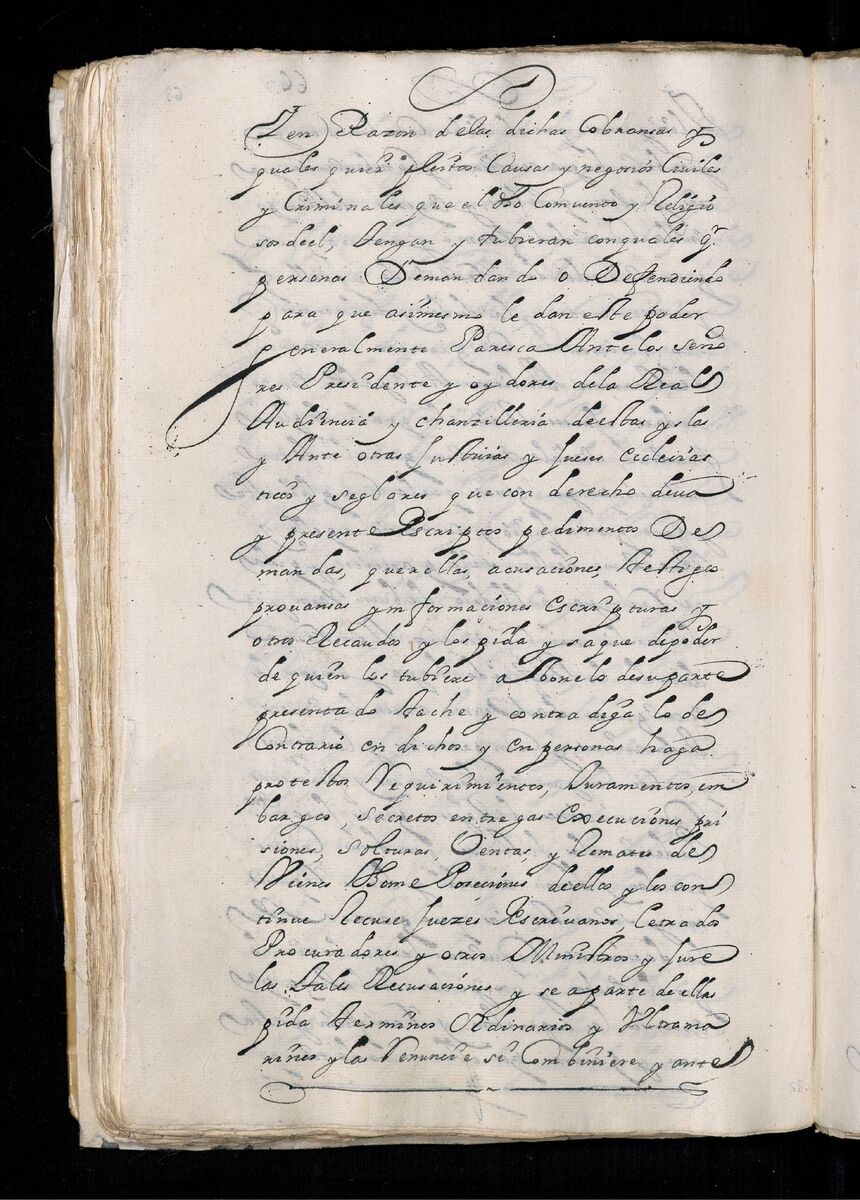 Y en Razon de las dichas Cobransas y
quales quier pleitos Causas y negocios Ciuiles
y Criminales que el dho Comuento y Religio
sos del, tengan y tubieran con quales qr
personas Demandando o Defendiendo
para que asimesmo le dan este poder
generalmente Paresca Ante los seño
res Presidente y oydores de la Real
Audiencia y chanzilleria de estas yslas
y Ante otras Justicias y Jueses Eclecias
ticos y seglares que con derecho deua
y presente Escriptos pedimentos De
mandas, querellas, acusaciones, testigos
prouansas ynformaciones Escripturas y
otros Recaudos y los pida y saque de poder
de quien los tubiere abone lo de su parte
presentado tache y contradiga lo de
Contrario en dichos y en personas haga
protestos Requirimientos, Juramentos, em
bargos, secretos entregas Execuciones pri
siones, solturas, Ventas, y Remates de
Vienes tome Poseciones de ellos y los con
tinue Recuse Juezes Escriuanos, Letrados
Procuradores y otros Ministros y Jure
las tales Recusaciones y se aparte de ellas
pida terminos Ordinarios y Vltrama
rinos y las Renuncie si Combiniere y ante